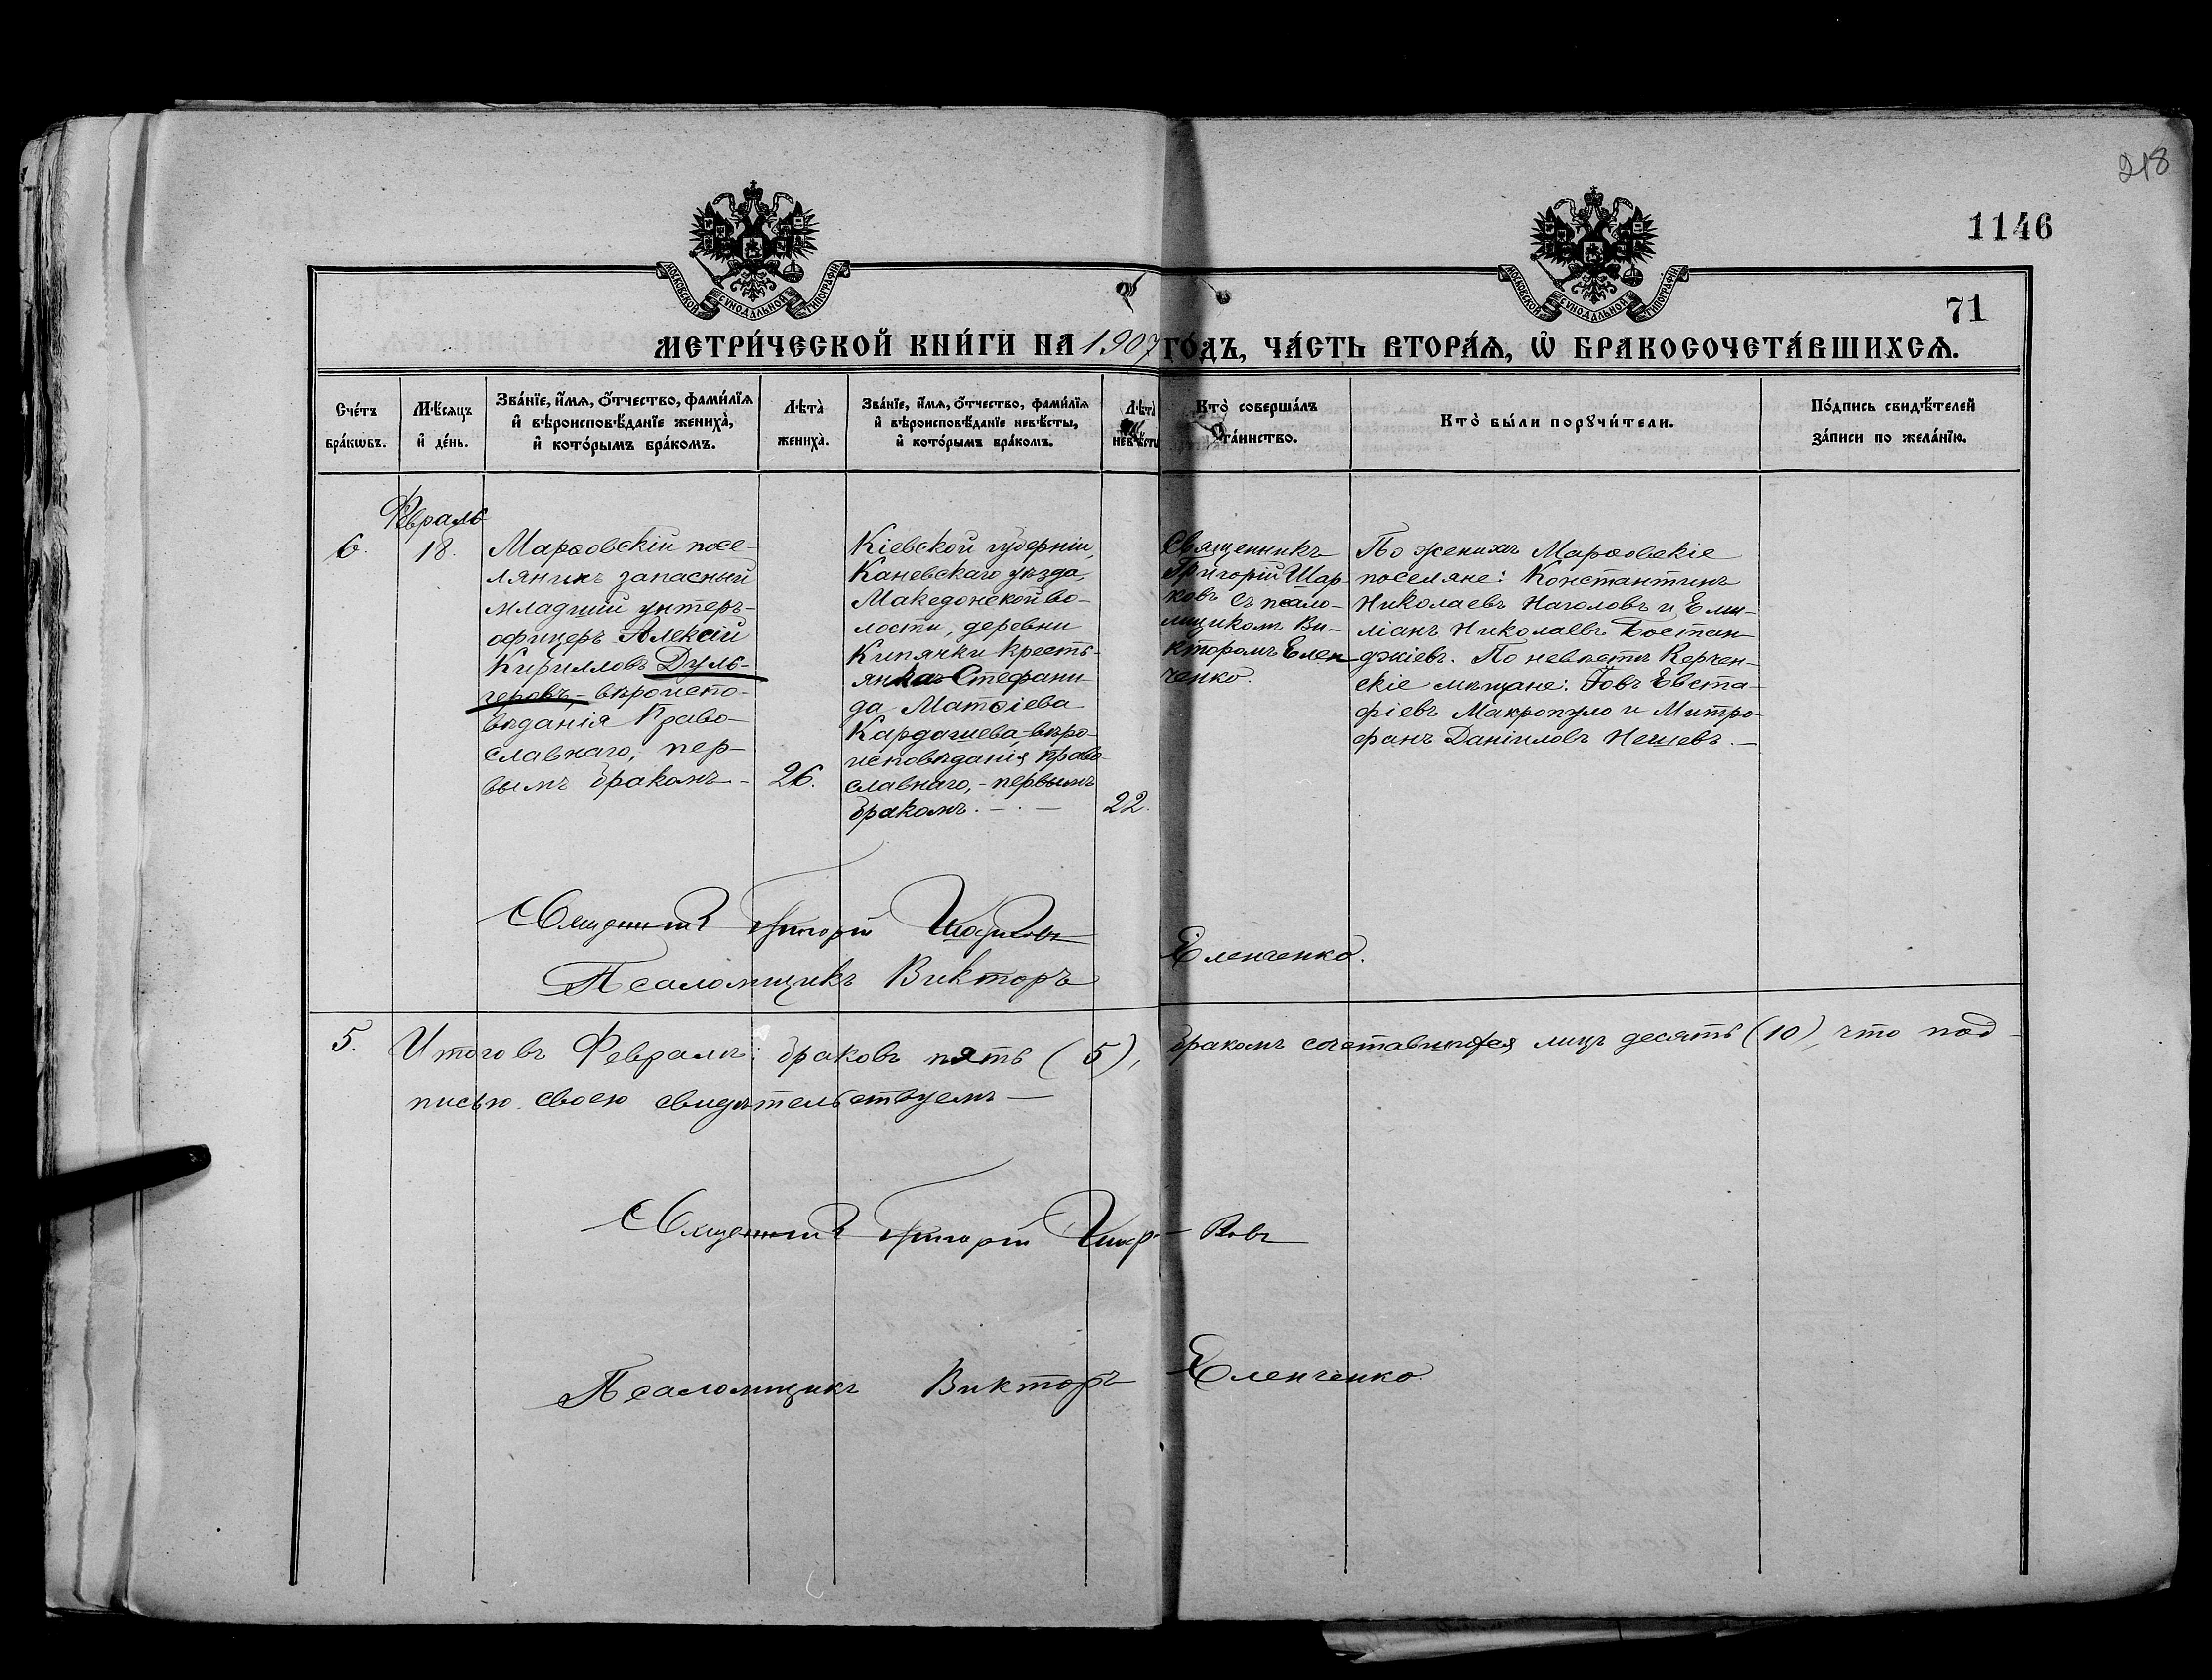 218
1146
71
МОСКОВСКОЙ СѴНОДАЛЬНОЙ ТИПОГРАФІИ
МОСКОВСКОЙ СѴНОДАЛЬНОЙ ТИПОГРАФІИ
МЕТРИ́ЧЕСКОЙ КНИ́ГИ НА 1907 ГО́ДЪ, ЧА́СТЬ ВТОРА́Ѧ, Ѡ҆ БРАКОСОЧЕТА́ВШИХСѦ.
Сче́тъ
бра́кѡвъ.
Мѣ́сяцъ
и҆ де́нь.
Зва́нїе, и҆́мѧ, о҆́тчество, фами́лїѧ
и҆ вѣроисповѣ́данїе жениха̀,
и҆ кото́рымъ бра́комъ.
Лѣта̀
жениха̀.
Зва́нїе, и҆́мѧ, о҆́тчество, фами́лїѧ
и҆ вѣроисповѣ́данїе невѣ́сты,
и҆ кото́рымъ бра́комъ.
Лѣта̀
невѣ́сты
Кто̀ соверша́лъ
та́инство.
Кто̀ бы́ли порꙋчи́тели.
По́дпись свидѣ́телей
за́писи по жела́нїю.
Февраль
6.
18.
Марѳовскій посе-
лянинъ запасный
младшій унтеръ-
офицеръ Алексій
Кирилловъ Дуль-
геровъ,- вѣроиспо-
вѣданія Право-
славнаго, пер-
вымъ бракомъ-
26.
Кіевской губерніи,
Каневскаго уѣзда,
Македонской во-
лости, деревни
Кипячки кресть-
янка Стефани-
да Матѳіева
Кардашева-вѣро-
исповѣданія право-
славнаго,- первымъ
бракомъ.-.-
22.
Священникъ
Григорій Шар-
ковъ съ псало-
мщикомъ Ви-
кторомъ Елен-
ченко.
По женихѣ Марѳовскіе
поселяне: Константинъ
Николаевъ Наголовъ и Еми-
ліанъ Николаевъ Бостан-
джіевъ. По невѣстѣ Керчен-
скіе мѣщане: Іовъ Евста-
фіевъ Макропуло и Митро-
фанъ Даніиловъ Нешевъ.-
Священникъ Григорій Шарковъ
Псаломщикъ Викторъ Еленченко.
5. Итого въ Февралѣ: браковъ пять (5), бракомъ сочетавшихся лицъ десять (10), что под-
писью своею свидѣтельствуемъ-
Священникъ Григорій Шар-ковъ
Псаломщикъ Викторъ Еленченко